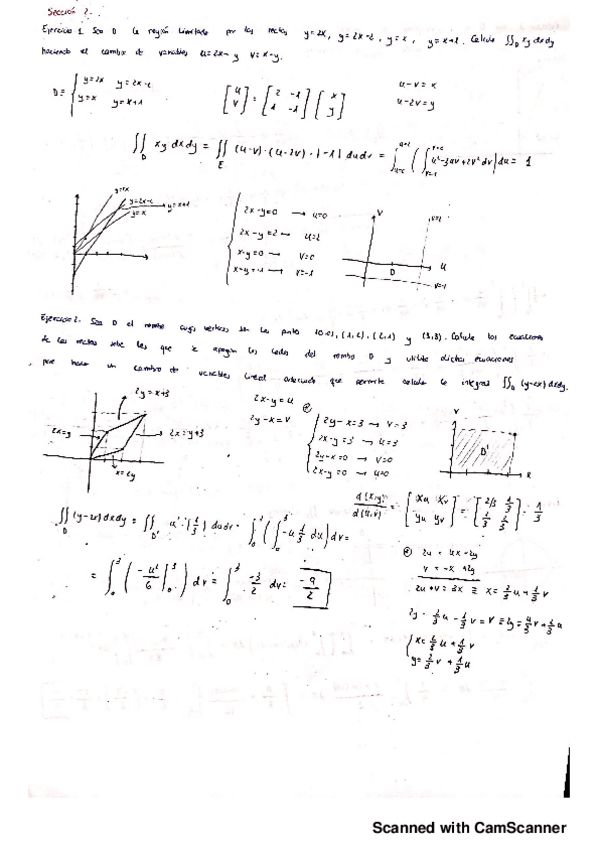 Sección 2.
Ejercicio 1. Sea D la región limitada por las rectas y=2x, y=2x-2, y=x, y=x+1. Calcula ∬_D xy dxdy
haciendo el cambio de variables u=2x-y v=x-y.
D≡ { y=2x y=2x-2
y=x y=x+1
[u v] = [2 -1 1 -1] [x y]
u-v=x
u-2v=y
∬_D xy dxdy = ∬_E (u-v)·(u-2v)·|-1| dudv = ∫ ( ∫ u²-3uv+2v² dv) du = 1
y=2x
y=2x-2
y=x+1
y=x
2x-y=0 → u=0
2x-y=2 → u=2
x-y=0 → v=0
x-y=-1 → v=-1
v
u
D
v=-1
Ejercicio 2. Sea D el rombo cuyos vertices son los puntos (0,0), (1,2), (2,1) y (3,3). Calcule las ecuaciones
de las rectas sobre las que se apoyan los lados del rombo D y utilice dichas ecuaciones
para hacer un cambio de variables lineal adecuado que permita calcular la integral ∬_D (y-2x)dxdy.
2y=x+3
2x=y
2x=y+3
x=2y
2x-y=u
2y-x=v
2y-x=3 → v=3
2x-y=3 → u=3
2y-x=0 → v=0
2x-y=0 → u=0
D'
d(x,y)/d(u,v) = [xu xv yu yv] = [2/3 1/3 1/3 2/3] = 1/3
∬_D (y-2x)dxdy = ∬_D' -u·(1/3) dudv = ∫_0^3 ( ∫_0^3 -u 1/3 du) dv =
= ∫_0^3 ( -u²/6 |_0^3 ) dv = ∫_0^3 -3/2 dv = -9/2
2u = 4x-2y
v = -x+2y
2u+v = 3x ≡ x = 2/3 u + 1/3 v
2y - 2/3 u - 1/3 v = v ≡ 2y = 4/3 v + 2/3 u
x = 2/3 u + 1/3 v
y = 2/3 v + 1/3 u
Scanned with CamScanner